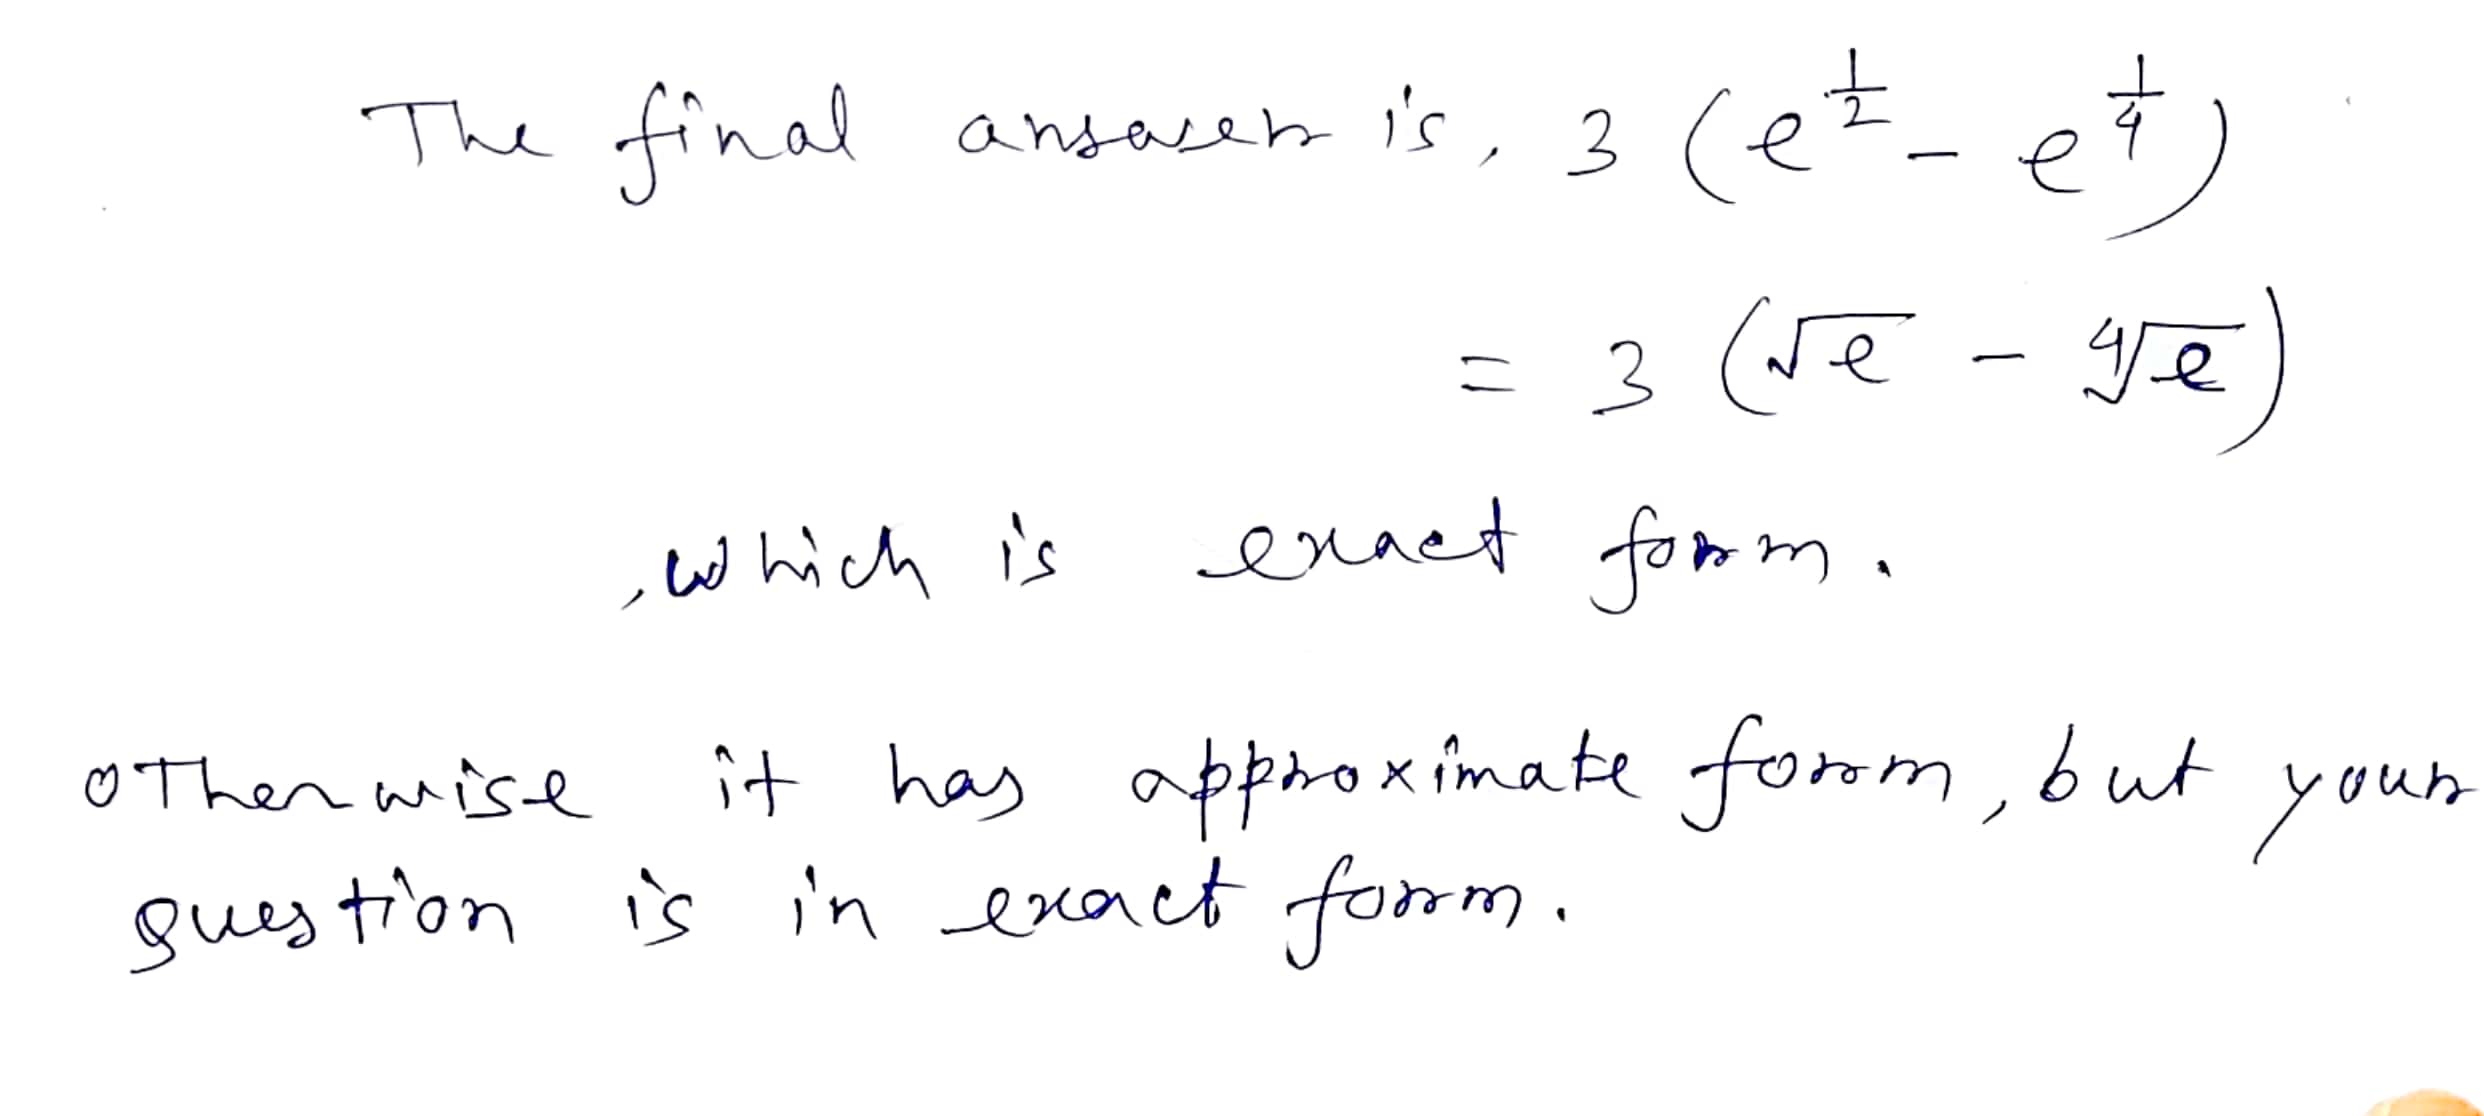 The final answer is, 3 (e^{1/2} - e^{1/4})
= 3 (√e - ∜e)
, which is exact form.
otherwise it has approximate form, but your
question is in exact form.